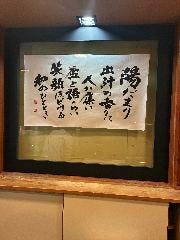 陽だまり
出汁の香り
人が集い
虚と語らい
笑顔ほころぶ
和のひととき